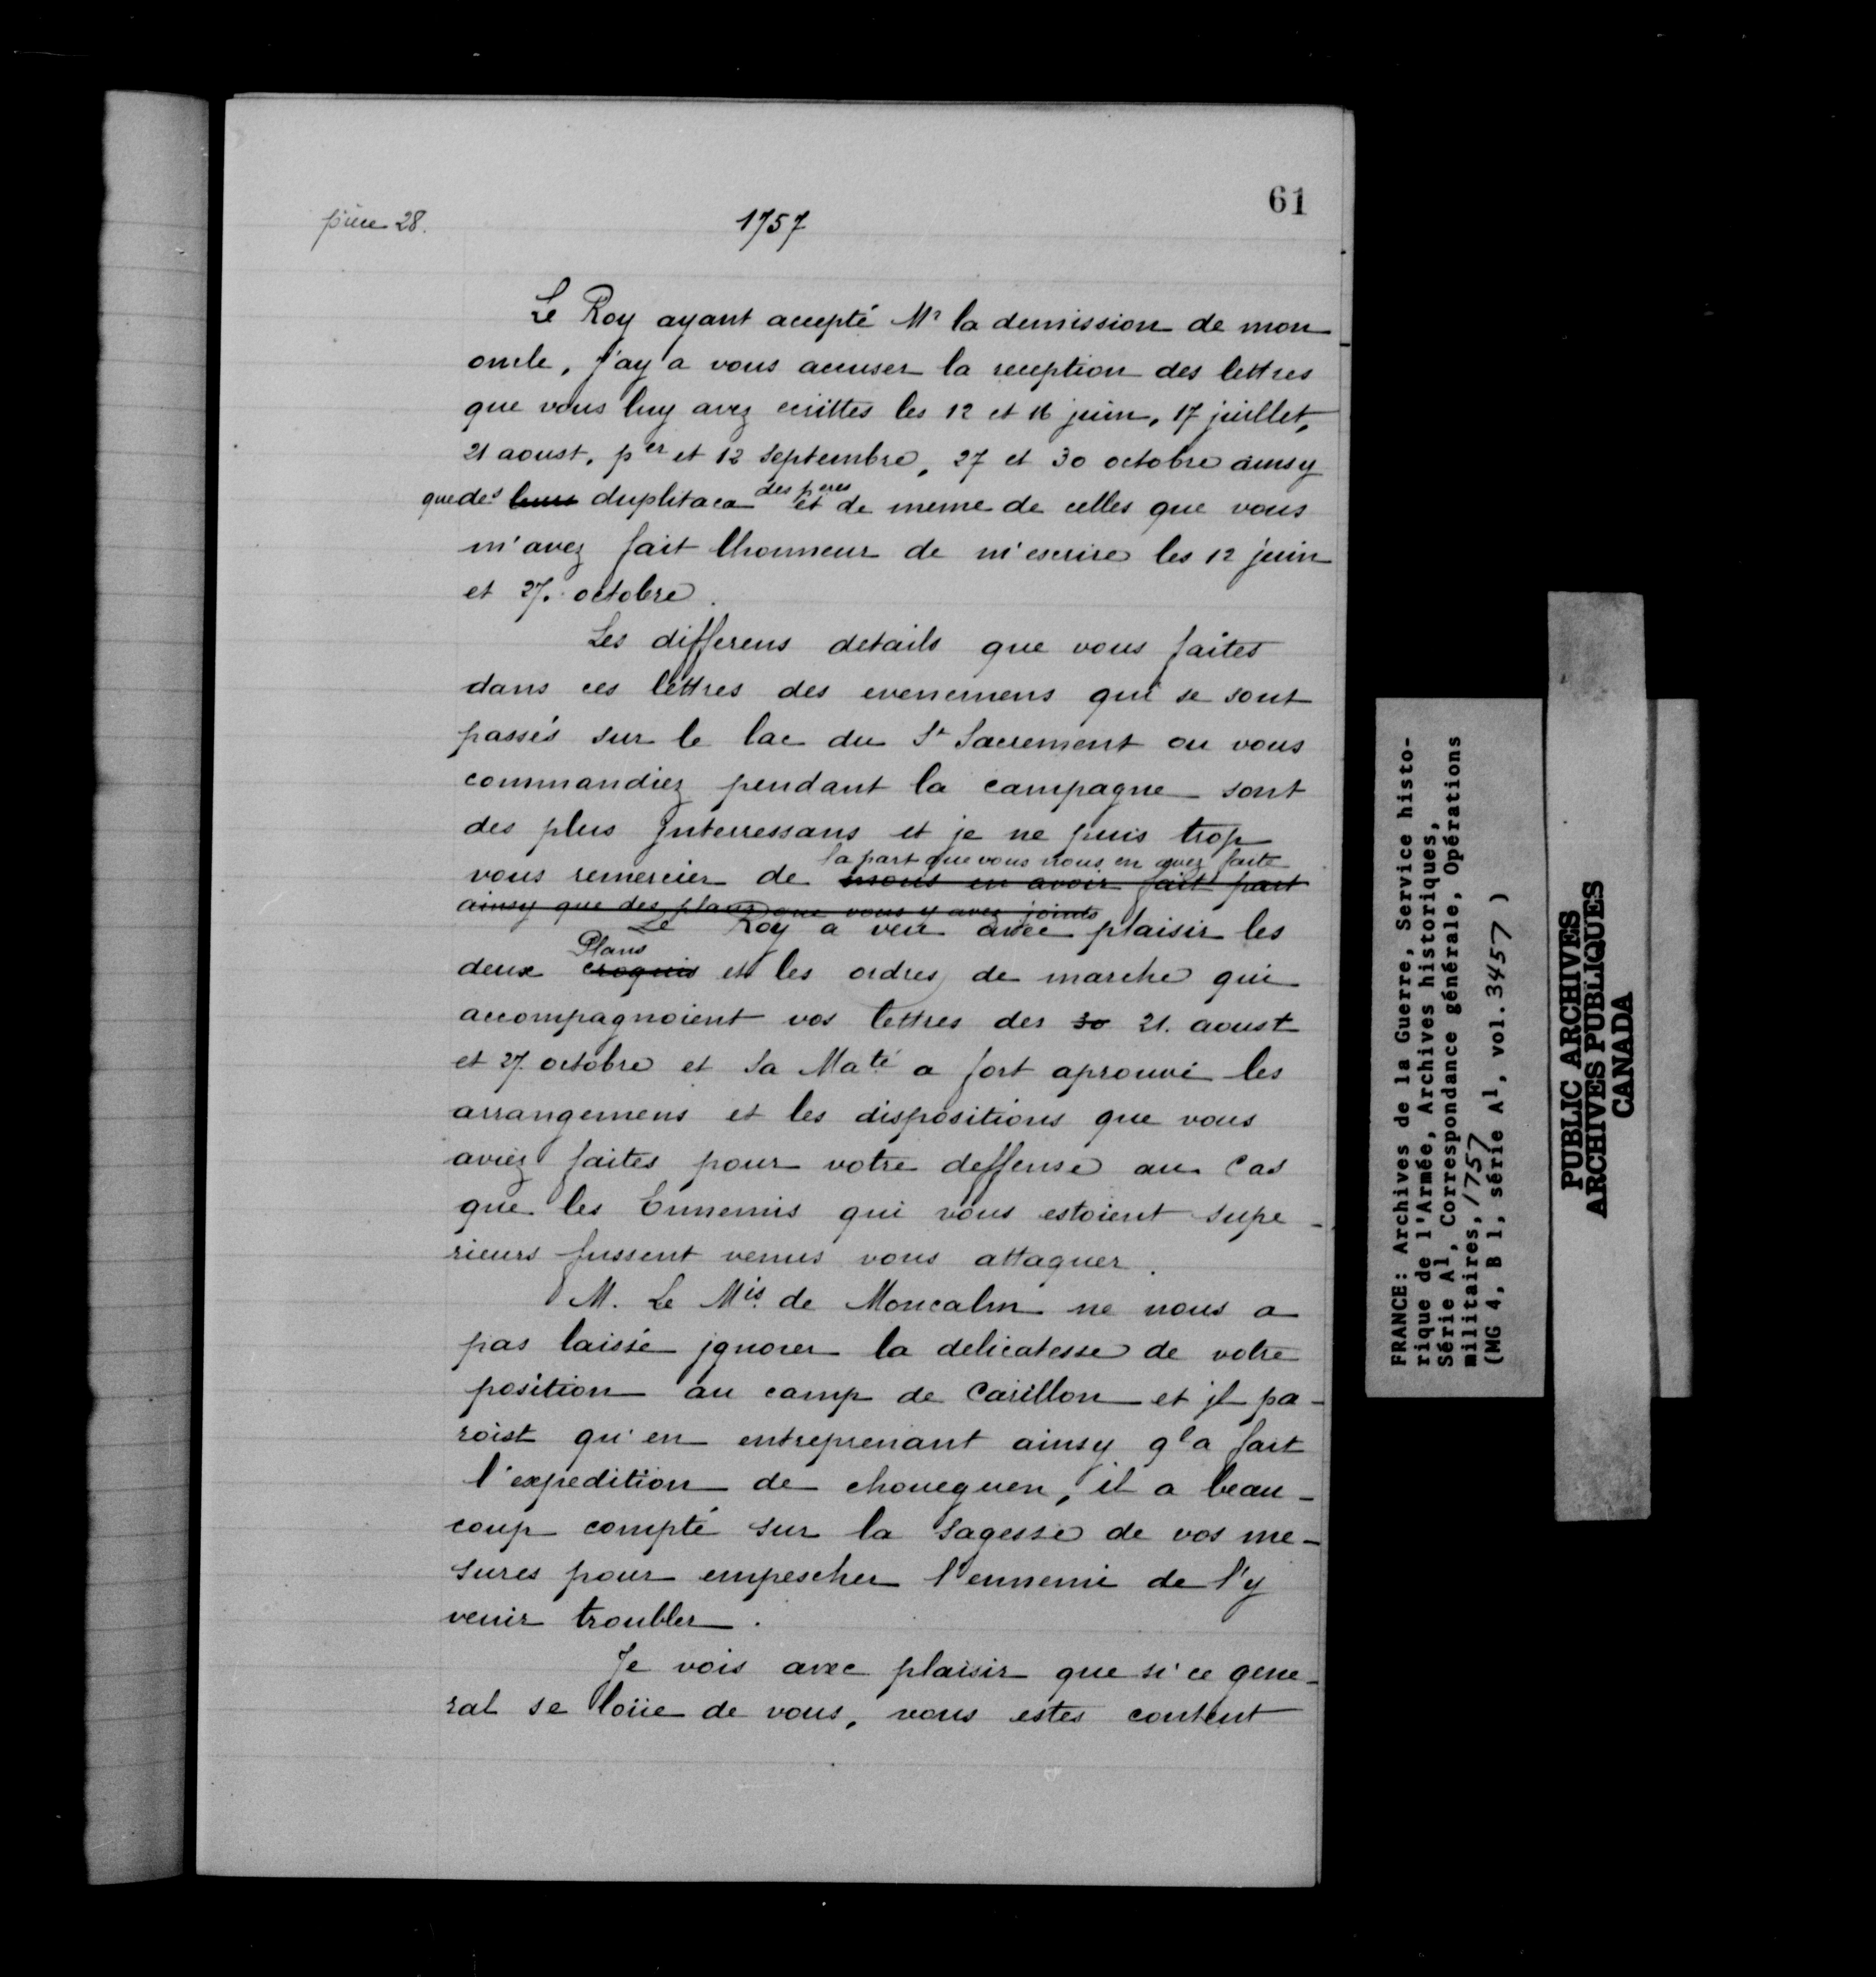 61
pièce 28.
1757
Le Roy ayant accepté Mr la demission de mon
oncle, j'ay a vous accuser la reception des lettres
que vous luy avez ecrittes les 12 et 16 juin, 17 juillet,
21 aoust, per et 12 septembre, 27 et 30 octobre ainsy
des peres
que des leurs duplitaca et de meme de celles que vous
m'avez fait lhonneur de m'escrire les 12 juin
et 27. octobre.
Les differens details que vous faites
dans ces lettres des evenemens qui se sont
passés sur le lac du St Sacrement ou vous
commandiez pendant la campagne sont
des plus Interressans et je ne puis trop
la part que vous nous en avez faite
vous remercier de nous en avoir fait part
ainsy que des plans que vous y avez joints
Le Roy a veu avec plaisir les
Plans
deux croquis et les ordres de marche qui
accompagnoient vos lettres des 30 21. aoust
et 27. octobre et Sa Maté a fort aprouvé les
arrangemens et les dispositions que vous
aviez faites pour votre deffense au Cas
que les Ennemis qui vous estoient supe-
rieurs fussent venus vous attaquer.
M. Le Mis de Moncalm ne nous a
pas laissé jgnorer la delicatesse de votre
position au camp de Carillon et jl pa-
roist qu'en entreprenant ainsy ql a fait
l'expedition de choueguen, il a beau-
coup compté sur la sagesse de vos me-
sures pour empescher l'ennemi de l'y
venir troubler.
Je vois avec plaisir que si ce gene-
ral se loüe de vous, vous estes content
FRANCE: Archives de la Guerre, Service histo-
rique de l'Armée, Archives historiques,
Série A1, Correspondance générale, Opérations
militaires, 1757
(MG 4, B 1, série A1, vol. 3457)
PUBLIC ARCHIVES
ARCHIVES PUBLIQUES
CANADA